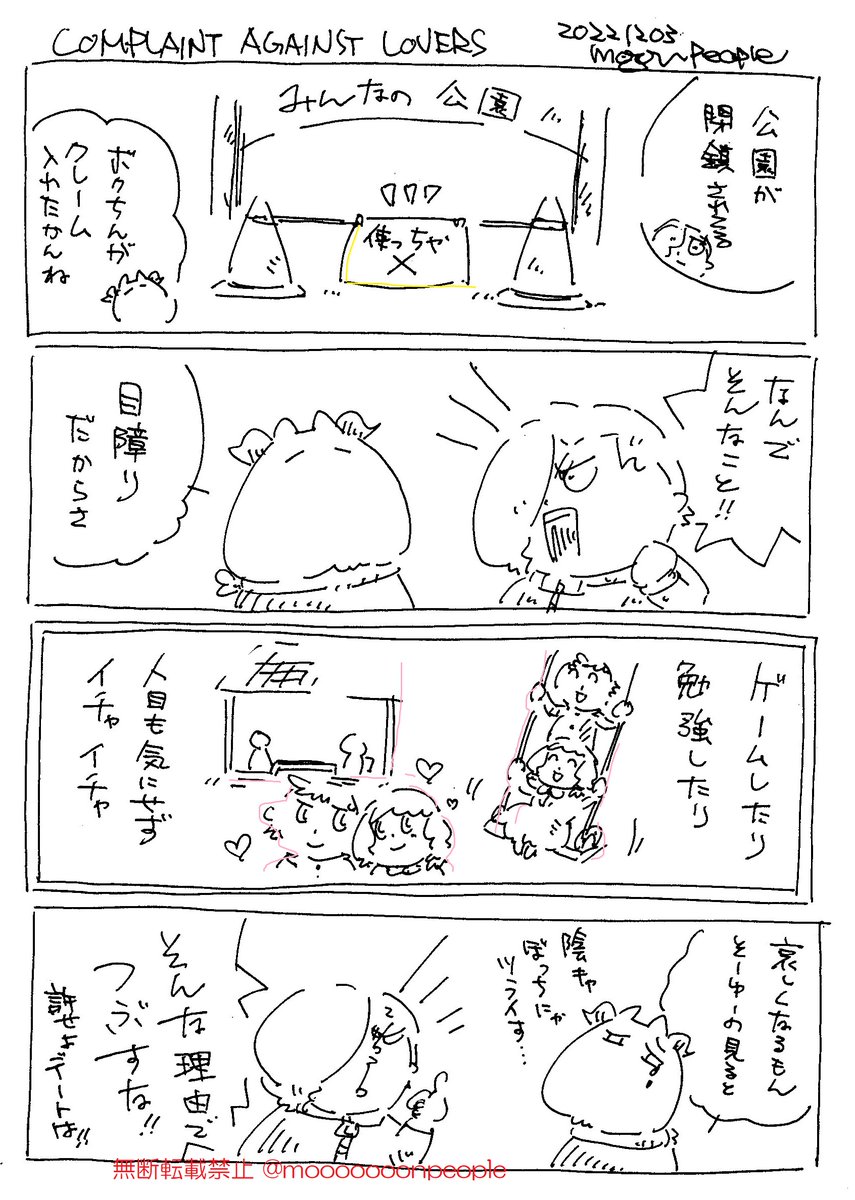 COMPLAINT AGAINST LOVERS
20221203
moonpeople
公園が
閉鎖されてる
みんなの 公園
使っちゃ
×
ボクちんが
クレーム
入れたかんね
なんで
そんなこと!!
目障り
だからさ
ゲームしたり
勉強したり
人目も気にせず
イチャイチャ
哀しくなるもん
そーゆーの見ると
陰キャ
ぼっちにゃ
ツライす…
そんな理由で
つぶすな!!
許せよデートは!!
無断転載禁止 @moooooooonpeople